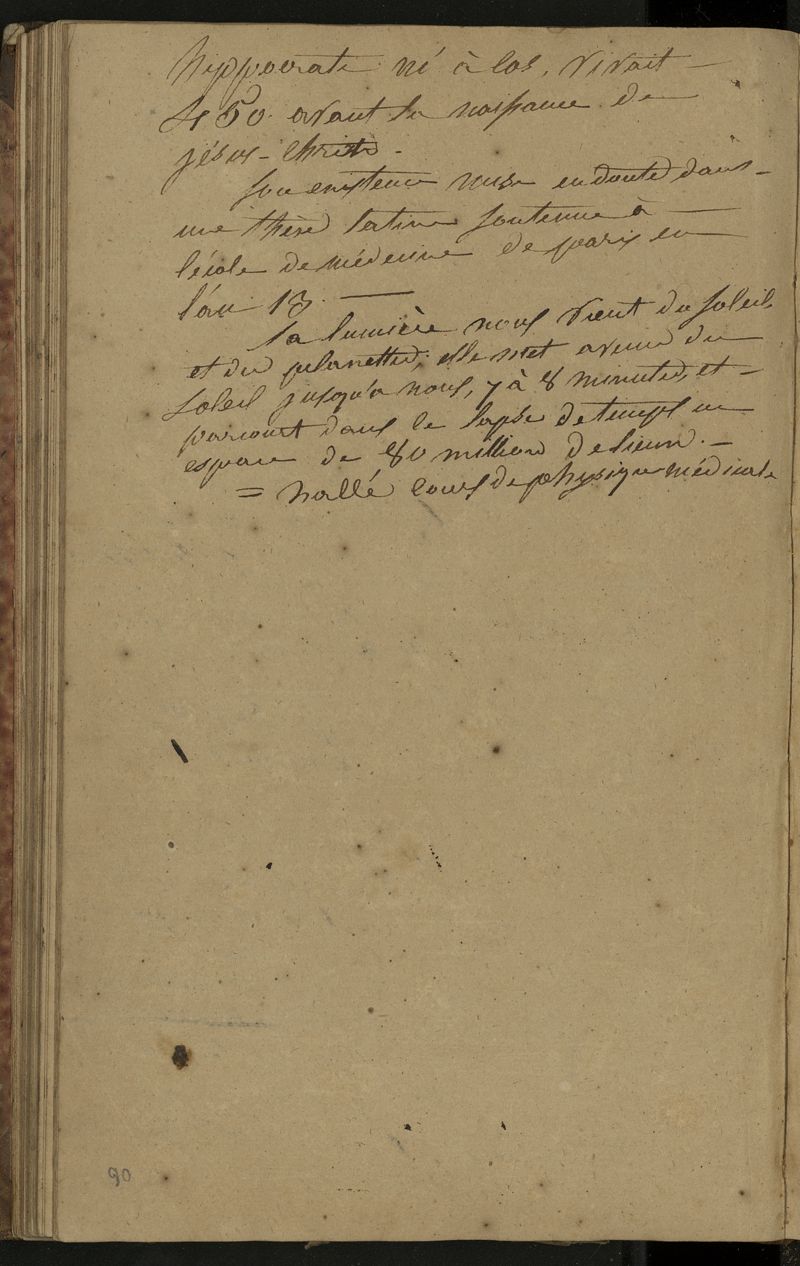 hippocrate né à Cos, vivait –
460 avant la naissance de
jésus-christ –
Son existence mise en doute dans –
une thèse latine soutenue à –
l'école de médecine de paris en
l'an 13. —
La lumière nous vient du soleil
et des planettes; elle met a venir du
soleil jusqu'a nous, 7 à 8 minutes, et –
parcourt dans le lapse de temps un
espace de 80 million de lieues. –
= hallé Cours de physique médicale
90